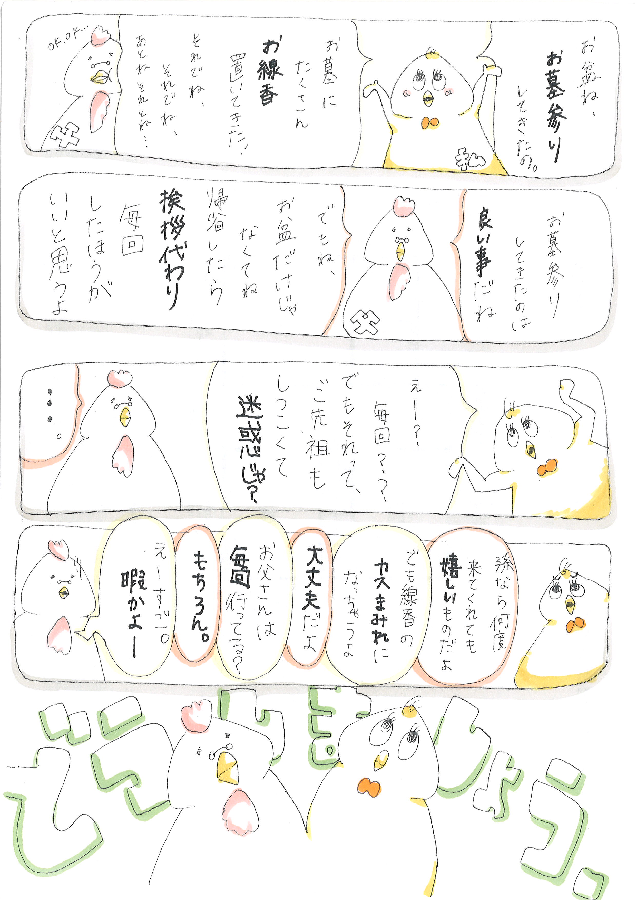 お盆ね、
お墓参り
してきたの。
お墓に
たくさん
お線香
置いてきた!
それでね、
それでね、
あとねそれとね…
OK.OK..
私
父
お墓参り
してきたのは
良い事だね
でもね
お盆だけじゃ
なくてね
帰省したら
挨拶代わり
毎回
したほうが
いいと思うよ
父
えー?.
毎回???
でもそれって、
ご先祖も
しつこくて
迷惑じゃ?
...。
孫なら何度
来てくれても
嬉しいものだよ
でも線香の
カスまみれに
なっちゃうよ
大丈夫だよ
お父さんは
毎回行ってる?
もちろん。
えーすご。
暇かよー
どうしましょう.